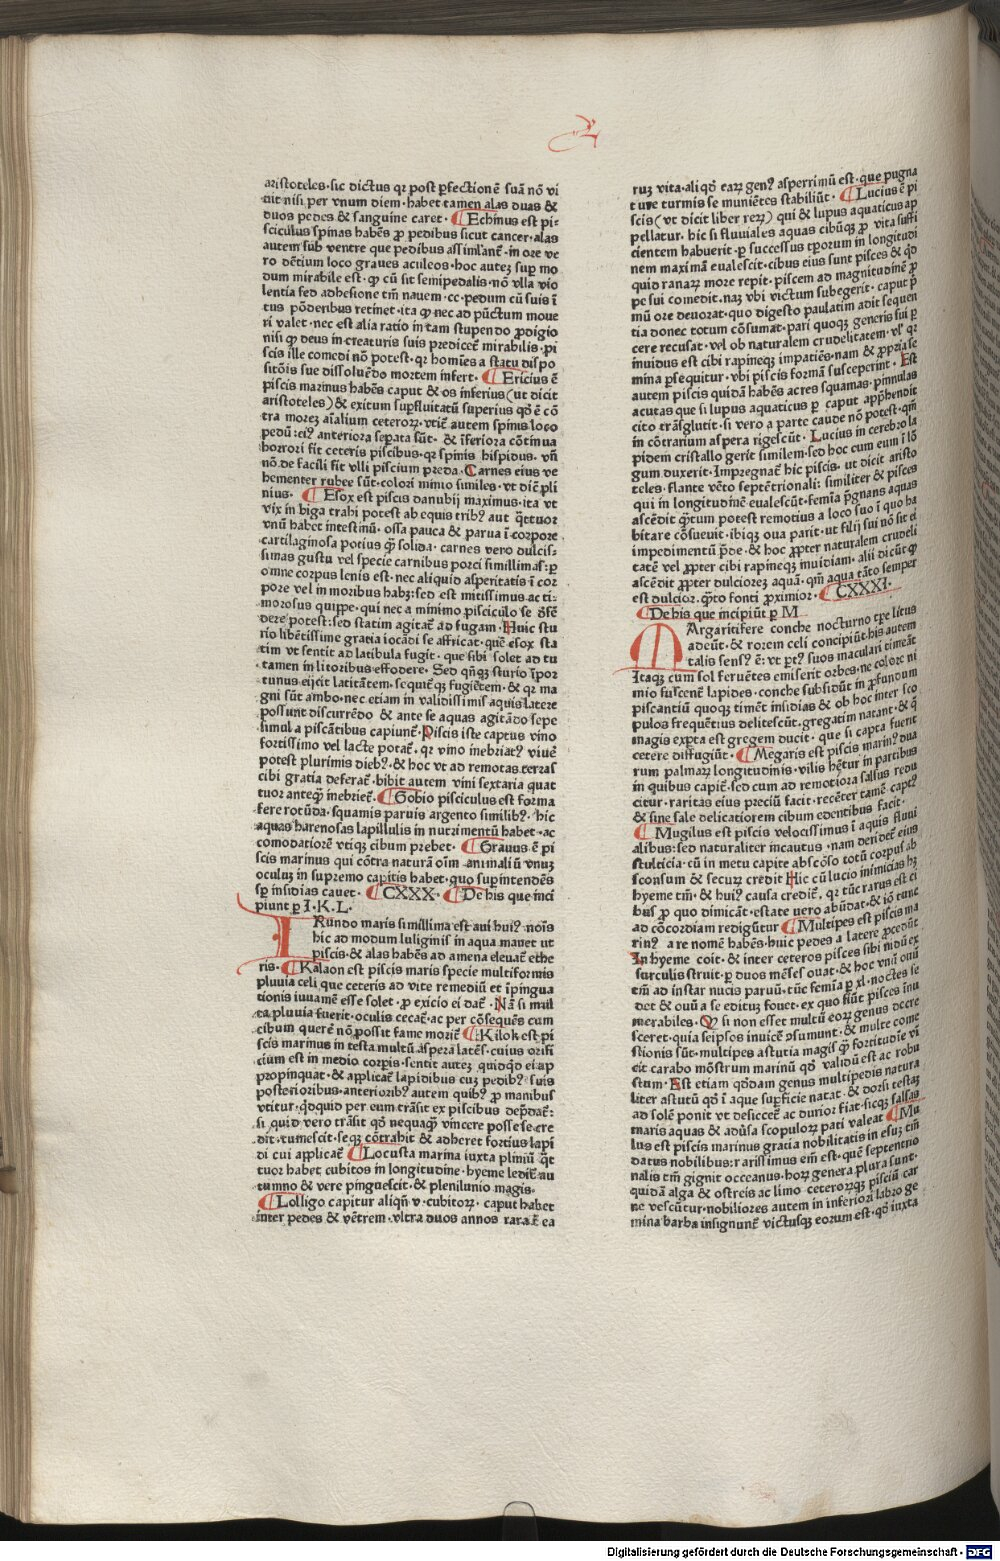 aristoteles·sic dictus qr post ꝑfectionē suā nō vi
uit nisi per vnum diem·habet tamen alas duas &
duos pedes & sanguine caret· Echinus est pi-
sciculus spinas habēs ꝓ pedibus sicut cancer·alas
autem sub ventre que pedibus assimilanť·in ore ve
ro dētium loco graves aculeos·hoc autez suꝑ mo
dum mirabile est·ꝙ cū sit semipedalis·nō vlla vio
lentia sed adhesione tm̄ nauem·cc·pedum cū suis ī
tus pōderibus retinet·ita ꝙ nec ad pūctum moue
ri valet·nec est alia ratio in tam stupendo ꝓdigio
nisi ꝙ deus in creaturis suis predicet̄ mirabilis·pi
scis ille comedi nō potest·qr homīes a statu dispo
sitōis sue dissoluēdo mortem infert· Ericius ē
piscis marinus habēs caput & os inferius(ut dicit
aristoteles)& exitum suꝑfluitatū superius qđ ē cō
tra morez aīalium ceteroꝝ·vtiť autem spinis loco
pedū:eiꝰ anteriora seꝑata sūt· & īferiora cōtinua
horrori fit ceteris piscibus·qr spinis hispidus·vñ
nō de facili fit vlli piscium preda·Carnes eius ve
hementer rubee sūt·colori minio similes·vt diē pli
nius· Esox est piscis danubij maximus·ita vt
vix in biga trahi potest ab equis tribꝰ aut q̄ttuor
vnū habet intestinū·ossa pauca & parua ī corpore
cartilaginosa potius q̄ꝫ solida·carnes vero dulcis-
simas gustu vel specie carnibus porci simillimas:ꝑ
omne corpus lenis est·nec aliquid asperitatis ī cor
pore vel in moribus habꝫ:sed est mitissimus ac ti-
morosus quippe·qui nec a minimo pisciculo se offē
dere potest:sed statim agitať ad fugam·Huic stu
rio libētissime gratia iocādi se affricat·quē esox sta
tim vt sentit ad latibula fugit·que sibi solet ad tu
tamen in litoribus effodere·Sed qñqꝫ sturio īpor
tunus eijcit latitātem·sequiť qꝫ fugiētem·& qr ma
gni sūt ambo·nec etiam in validissimis aquis latere
possunt discurrēdo & ante se aquas agitādo sepe
simul a piscātibus capiunť·Piscis iste captus vino
fortissimo vel lacte potať·qr vino inebriatꝰ viuē
potest plurimis diebꝰ·& hoc vt ad remotas terras
cibi gratia deferať·bibit autem vini sextaria quat
tuor anteq̄ꝫ inebrieť· Gobio pisciculus est forma
fere rotūda·squamis paruis argento similibꝰ·hic
aquas harenosas lapillulis in nutrimentū habet·ac
comodatiorē vtiqꝫ cibum prebet· Gravus ē pi
scis marinus qui cōtra naturā oīm animaliū vnuꝫ
oculuꝫ in supremo capitis habet·quo suꝑintendēs
sꝑ insidias cauet· CXXX· De his que inci
piunt ꝑ I·K·L·
IRundo maris simillima est aui huiꝰ noīs
hic ad modum luliginis in aqua mauet ut
piscis·& alas habēs ad amena eleuať ethe
ris· Kalaon est piscis maris specie multiformis
pluuia celi que ceteris ad vite remediū et īpingua
tionis iuuamē esse solet·ꝓ exicio ei dať·Nā si mul
ta pluuia fuerit·oculis cecať·ac per cōsequēs cum
cibum querē nō possit fame morit̄ Kilok est pi
scis marinus in testa multū aspera latēs·cuius orifi
cium est in medio corpis·sentit autez quidqđ ei ap
propinquat·& applicať lapidibus cuz pedibꝰ suis
posterioribus·anterioribꝰ autem quibꝰ ꝓ manibus
vtitur·qđquid per eum trāsit ex piscibus depđať:
si quid vero trāsit qđ nequaq̄ꝫ vincere posse se cre
dit·tumescit·seqꝫ cōtrahit & adheret fortius lapi
di cui applicať Locusta marina iuxta pliniū q̄t
tuor habet cubitos in longitudine·hyeme ledit̄·au
tumno & vere pinguescit·& plenilunio magis·
Lolligo capitur aliqñ v·cubitoꝝ·caput habet
inter pedes & vētrem·vltra duos annos rara ē ea
ruꝫ vita·ali qđ eaꝝ genꝰ asperrimū est·que pugna
t ure turmis se muniētes stabiliūt· Lucius ē pi
scis(vt dicit liber reꝝ) qui & lupus aquaticus ap
pellatur·hic si fluuiales aquas cibūqꝫ ꝓ vita suffi
cientem habuerit·ꝑ successus tꝑorum in longitudi
nem maximā eualescit·cibus eius sunt pisces & qđ
quid ranaꝝ more repit·piscem ad magnitudinē ꝓ
pe sui comedit·naꝫ vbi victum subegerit·caput p̄
mū ore deuorat·quo digesto paulatim adit sequen
tia donec totum cōsumat·pari quoqꝫ generis sui ꝑ
cere recusat·vel ob naturalem crudelitatem·vl' qr
inuidus est cibi rapineqꝫ impatiēs·nam & ꝓpria se
mina ꝑsequitur·vbi piscis formā susceperint·Est
autem piscis quidā habēs acres squamas·pinnulas
acutas que si lupus aquaticus ꝑ caput app̄hendit
cito trāsglutit·si vero a parte caude nō potest·qm̄
in cōtrarium aspera rigescūt·Lucius in cerebro la
pidem cristallo gerit similem·sed hoc cum eum ī lō
gum duxerit·Impregnať hic piscis·ut dicit aristo
teles·flante vēto septētrionali:similiter & pisces
qui in longitudinē eualescūt·femīa p̄gnans aquas
ascēdit q̄tum potest remotius a loco suo ī quo ha
bitare cōsueuit·ibiqꝫ oua parit·ut filij sui nō sit ei
impedimentū p̄de·& hoc ꝓpter naturalem crudeli
tatē vel ꝓpter cibi rapineqꝫ inuidiam·alij dicūt ꝙ
ascēdit ꝓpter dulciorez aquā·qm̄ aqua tāto semper
est dulcior·q̄to fonti ꝓximior· CXXXI·
De his que incipiūt ꝑ M
MArgaritifere conche nocturno tꝑe litus
adeūt·& rorem celi concipiūt·his autem
talis sensꝰ ē:vt ptꝰ suos maculari timeāt
Itaqꝫ cum sol feruētes emiserit orbes·ne colore ni
mio fuscenť lapides·conche subsidūt in ꝓfundum
piscantiū quoqꝫ timēt insidias & ob hoc inter sco
pulos frequētius delitescūt·gregatim natant·& q̄
magis exꝑta est gregem ducit·que si capta fuerit
cetere diffugiūt· Megaris est piscis marinꝰ dua
rum palmaꝝ longitudinis·vilis hētur in partibus
in quibus capiť·sed cum ad remotiora salsus redu
citur·raritas eius preciū facit·recēter tamē captꝰ
& sine sale delicatiorem cibum edentibus facit·
Mugilus est piscis velocissimus ī aquis fluui
alibus:sed naturaliter incautus·nam deridet̄ eius
stulticia·cū in metu capite abscōso totū corpus ab
sconsum & securꝫ credit Hic cū lucio inimicias hꝫ
hyeme tm̄·& huiꝰ causa credit̄·qr tūc rarus est ci
bus ꝓ quo dimicāt·estate uero abūdat·& iō tunc
ad cōcordiam rediguntur Multipes est piscis ma
rinꝰ a re nomē habēs·huic pedes a latere ꝓcedūt
In hyeme coit·& inter ceteros pisces sibi nidū ex
surculis struit·ꝑ duos mēses ouat·& hoc vnā ouū
tm̄ ad instar nucis paruū·tūc femīa ꝑ xl·noctes se
det & ouū a se edituꝫ fouet·ex quo fiūt pisces īnu
merabiles·Qꝫ si non esset multū eoꝝ genus decre
sceret·quia seipsos inuicē ꝯsumunt·& multe come
stionis sūt·multipes astutia magis q̄ꝫ fortitudīe vī
cit carabo mōstrum marinū qđ validū est ac robu
stum·Est etiam qđdam genus multipedis natura
liter astutū qđ ī aque suꝑficie natat·& dorsi testaꝫ
ad solē ponit vt desicceť ac durior fiat·sicqꝫ salsas
maris aquas & adūsa scopuloꝝ pati valeat Mu
lus est piscis marinus gracia nobilitatis in esuꝫ tm̄
datus nobilibus:rarissimus em̄ est·quē septentrio
nalis tm̄ gignit occeanus·hoꝝ genera plura sunt·
quidā alga & ostreis ac limo ceteroꝝqꝫ pisciū car
ne vescūtur·nobiliores autem in inferiori labro ge
mina barba insignunť victusqꝫ eorum est·qđ iuxta
Digitalisierung gefördert durch die Deutsche Forschungsgemeinschaft - DFG